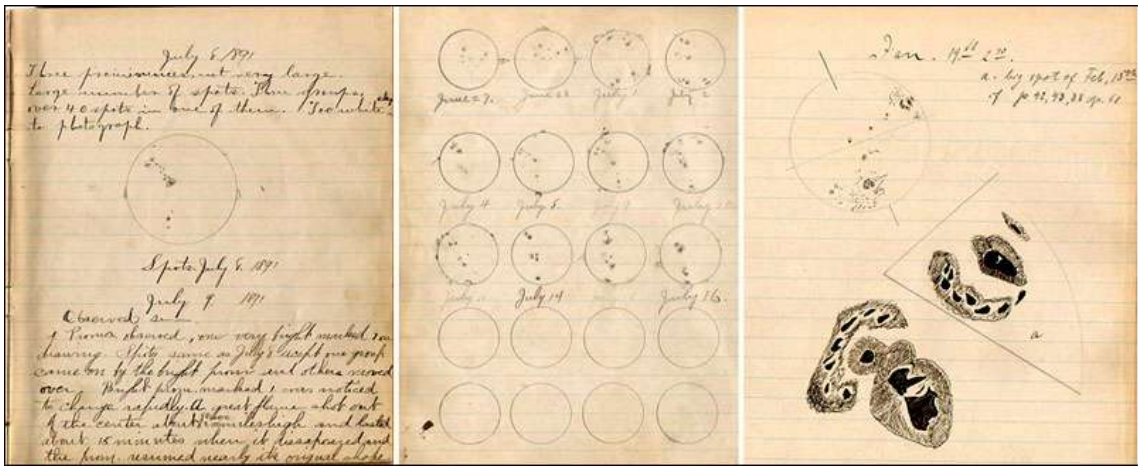 July 8, 1891
Three prominences, not very large.
Large number of spots. Three groups,
over 40 spots in one of them. Too white
to photograph.
Spots July 8. 1891
July 9. 1891
Observed sun.
Proms observed, one very bright marked 1 on
drawing. Spots same as July 8 except one group
came on by the bright prom and others moved
over. Bright prom marked 1 was noticed
to change rapidly. A great flame shot out
of the center about miles high and lasted
about 15 minutes when it dissapeared and
the prom. resumed nearly its original shape
June 27.
July 1
July 2
July 4
July 5
July 14
July 16.
a. big spot of Feb, 15
of
a